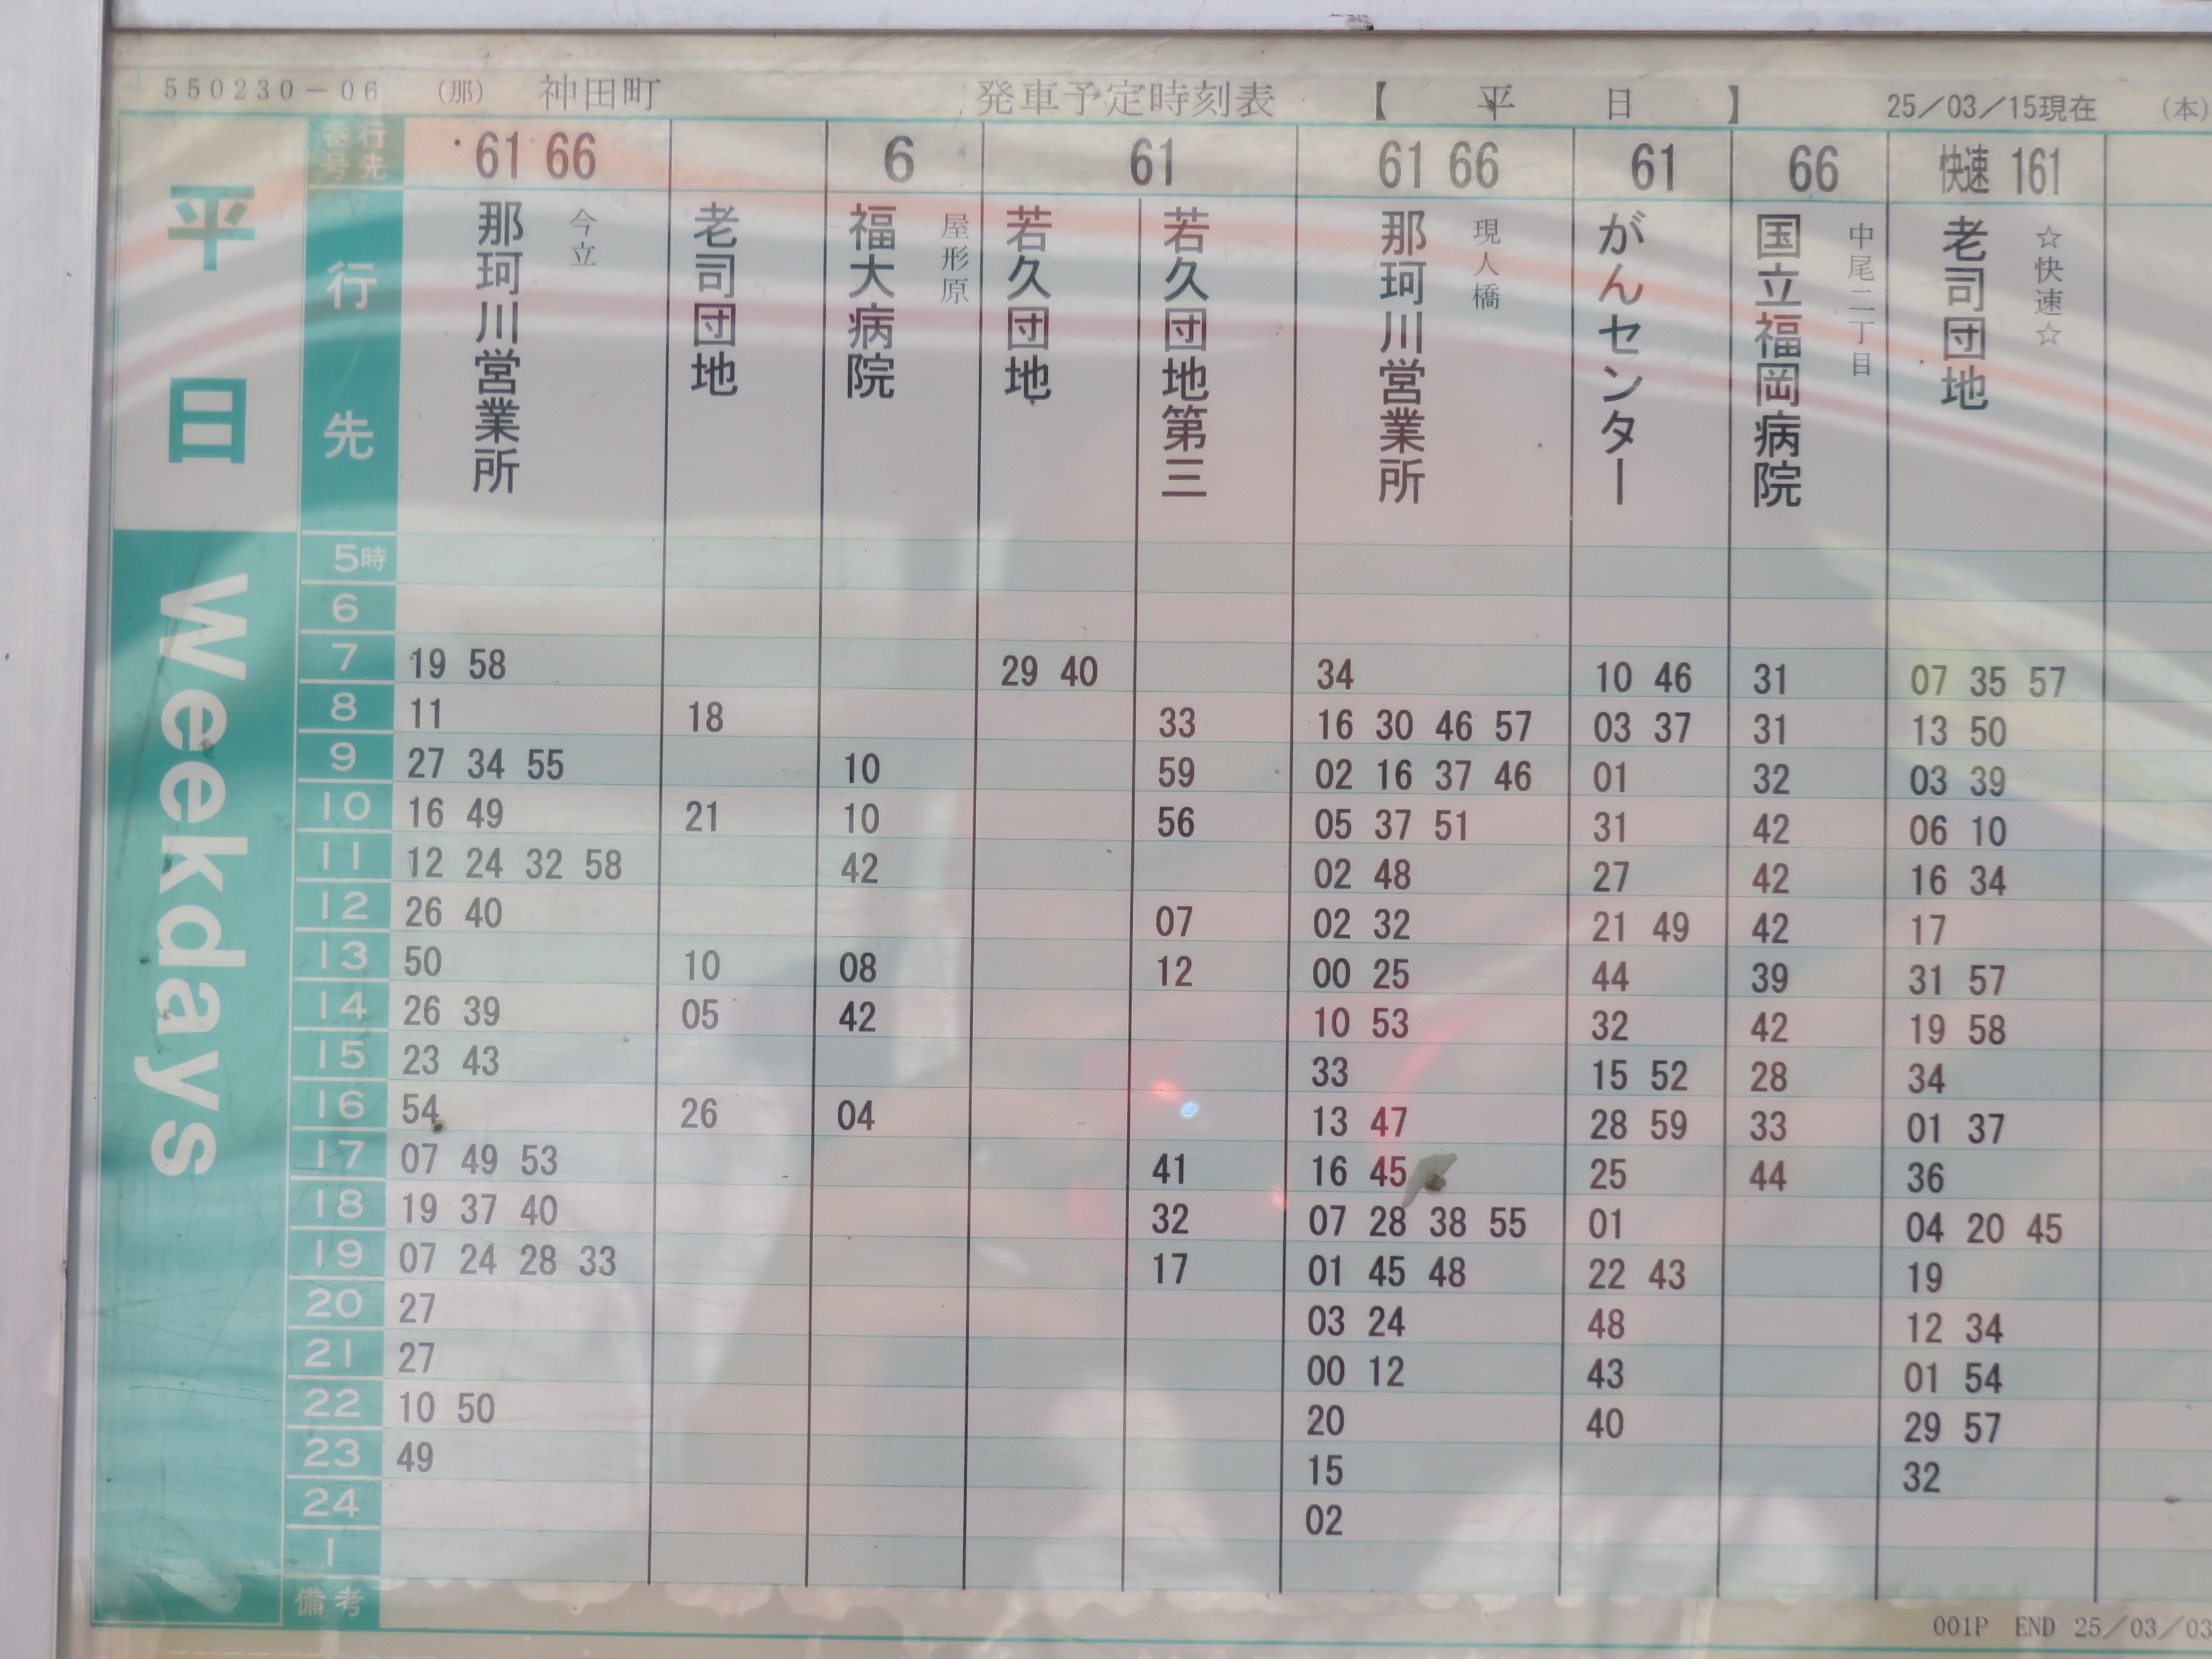 550230-06 (那) 神田町 発車予定時刻表 【 平 日 】 25/03/15現在 (本)
平日
Weekdays
行先番号 61 66 6 61 61 66 61 66 快速 161
行先
那珂川営業所 今立
老司団地
福大病院 屋形原
若久団地
若久団地第三
那珂川営業所 現人橋
がんセンター
国立福岡病院 中尾二丁目
老司団地 ☆快速☆
5時
6
7 19 58 29 40 34 10 46 31 07 35 57
8 11 18 33 16 30 46 57 03 37 31 13 50
9 27 34 55 10 59 02 16 37 46 01 32 03 39
10 16 49 21 10 56 05 37 51 31 42 06 10
11 12 24 32 58 42 02 48 27 42 16 34
12 26 40 07 02 32 21 49 42 17
13 50 10 08 12 00 25 44 39 31 57
14 26 39 05 42 10 53 32 42 19 58
15 23 43 33 15 52 28 34
16 54 26 04 13 47 28 59 33 01 37
17 07 49 53 41 16 45 25 44 36
18 19 37 40 32 07 28 38 55 01 04 20 45
19 07 24 28 33 17 01 45 48 22 43 19
20 27 03 24 48 12 34
21 27 00 12 43 01 54
22 10 50 20 40 29 57
23 49 15 32
24 02
1
備考
001P END 25/03/03